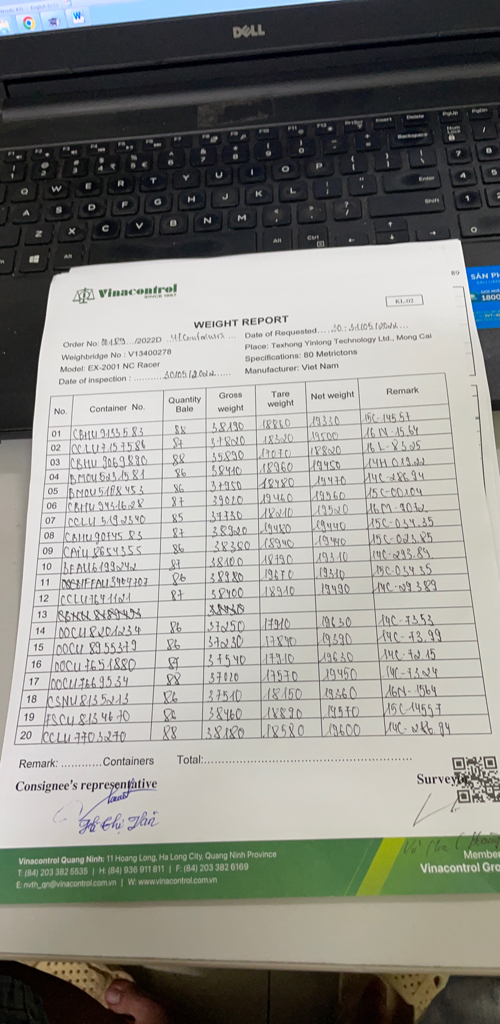 DELL
Vinacontrol
SINCE 1957
KL.02
WEIGHT REPORT
Order No: /2022D
Date of Requested 30-31/05/2022
Weighbridge No : V13400278
Place: Texhong Yinlong Technology Ltd., Mong Cai
Model: EX-2001 NC Racer
Specifications: 80 Metrictons
Date of inspection : 30/05/2022
Manufacturer: Viet Nam
No. Container No. Quantity Bale Gross weight Tare weight Net weight Remark
01 CBHU9133583 88 38190 18860 19330 15C-14557
02 CCLU7157586 87 37820 18320 19500 16N-1564
03 CBHU 9069890 88 35890 17070 18820 16L-8325
04 BMOU5231581 86 38410 18960 19450 14H01322
05 BMOU5188453 86 37950 18480 19470 14C-286.94
06 87 39020 19460 19560 15C-00104
07 CCLU 5192540 85 37730 18210 19520 16M-9072
08 87 38920 19480 19440 15C-034.35
09 CAIU 8654355 86 38380 18940 19440 15C-023.85
10 BEAU6199242 87 38100 18790 19310 14C-293.89
11 3404707 86 38980 19670 19310 15C-03435
12 CCLU7641121 87 38400 18910 19490 14C-29389
13
14 OOCU8201234 86 37250 17910 19630 14C-7353
15 OOCU 8955379 86 37230 17840 19390 14C-73.99
16 OOCU 7651880 87 37540 17910 19630 14C-72.15
17 OOCU7669534 88 37020 17570 19450 14C-7324
18 CSNU8135213 86 37510 18150 19360 16N-1564
19 FSCU 8134670 86 38460 18890 19570 15C14557
20 CCLU7703270 88 38180 18580 19600 14C-286.94
Remark: ............Containers Total:
Consignee's representative
Surveyor
Vinacontrol Quang Ninh: 11 Hoang Long, Ha Long City, Quang Ninh Province
T: (84) 203 382 5535 | H: (84) 936 911 811 | F: (84) 203 382 6169
E: nvth_qn@vinacontrol.com.vn | W: www.vinacontrol.com.vn
Member
Vinacontrol Gro
SẢN PH
1800